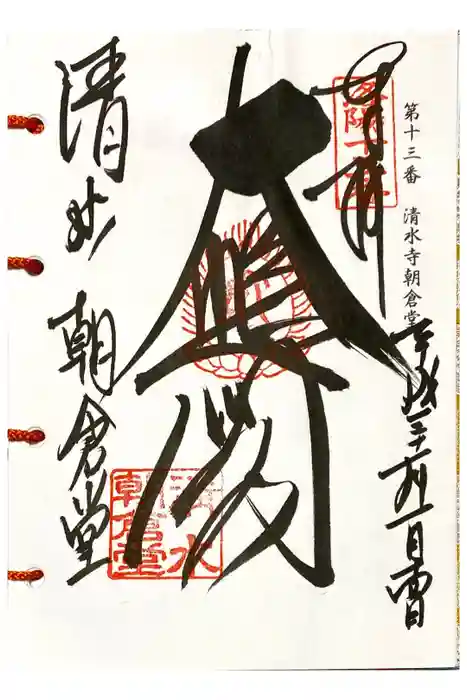 第十三番　清水寺朝倉堂
奉拝
洛陽十三
平成三十
大悲閣
清水
朝倉堂
清水 朝倉堂